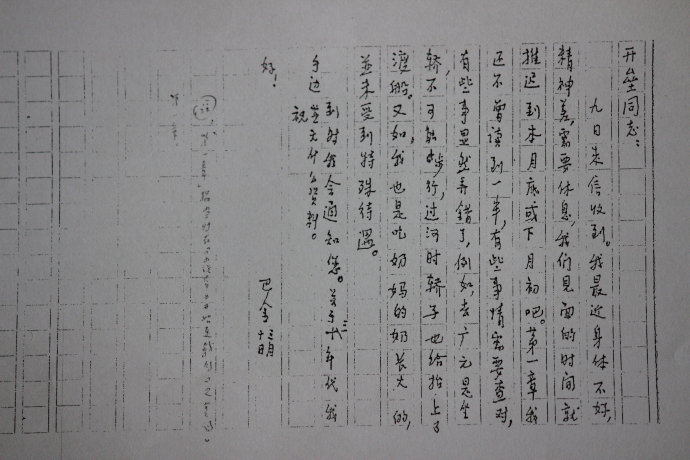 开垒同志：
九日来信收到。我最近身体不好，
精神差，需要休息，我们见面的时间就
推迟到本月底或下月初吧。第一章我
还不曾读到一半，有些事情需要查对，
有些事显然弄错了，例如，去广元是坐
轿，不可能步行，过河时轿子也给抬上了
渡船。又如，我也是吃奶妈的奶长大的，
并未受到特殊待遇。
到时我会通知您。关于三十年代我
手边并无什么资料。
祝
好！
巴金 三月
十日